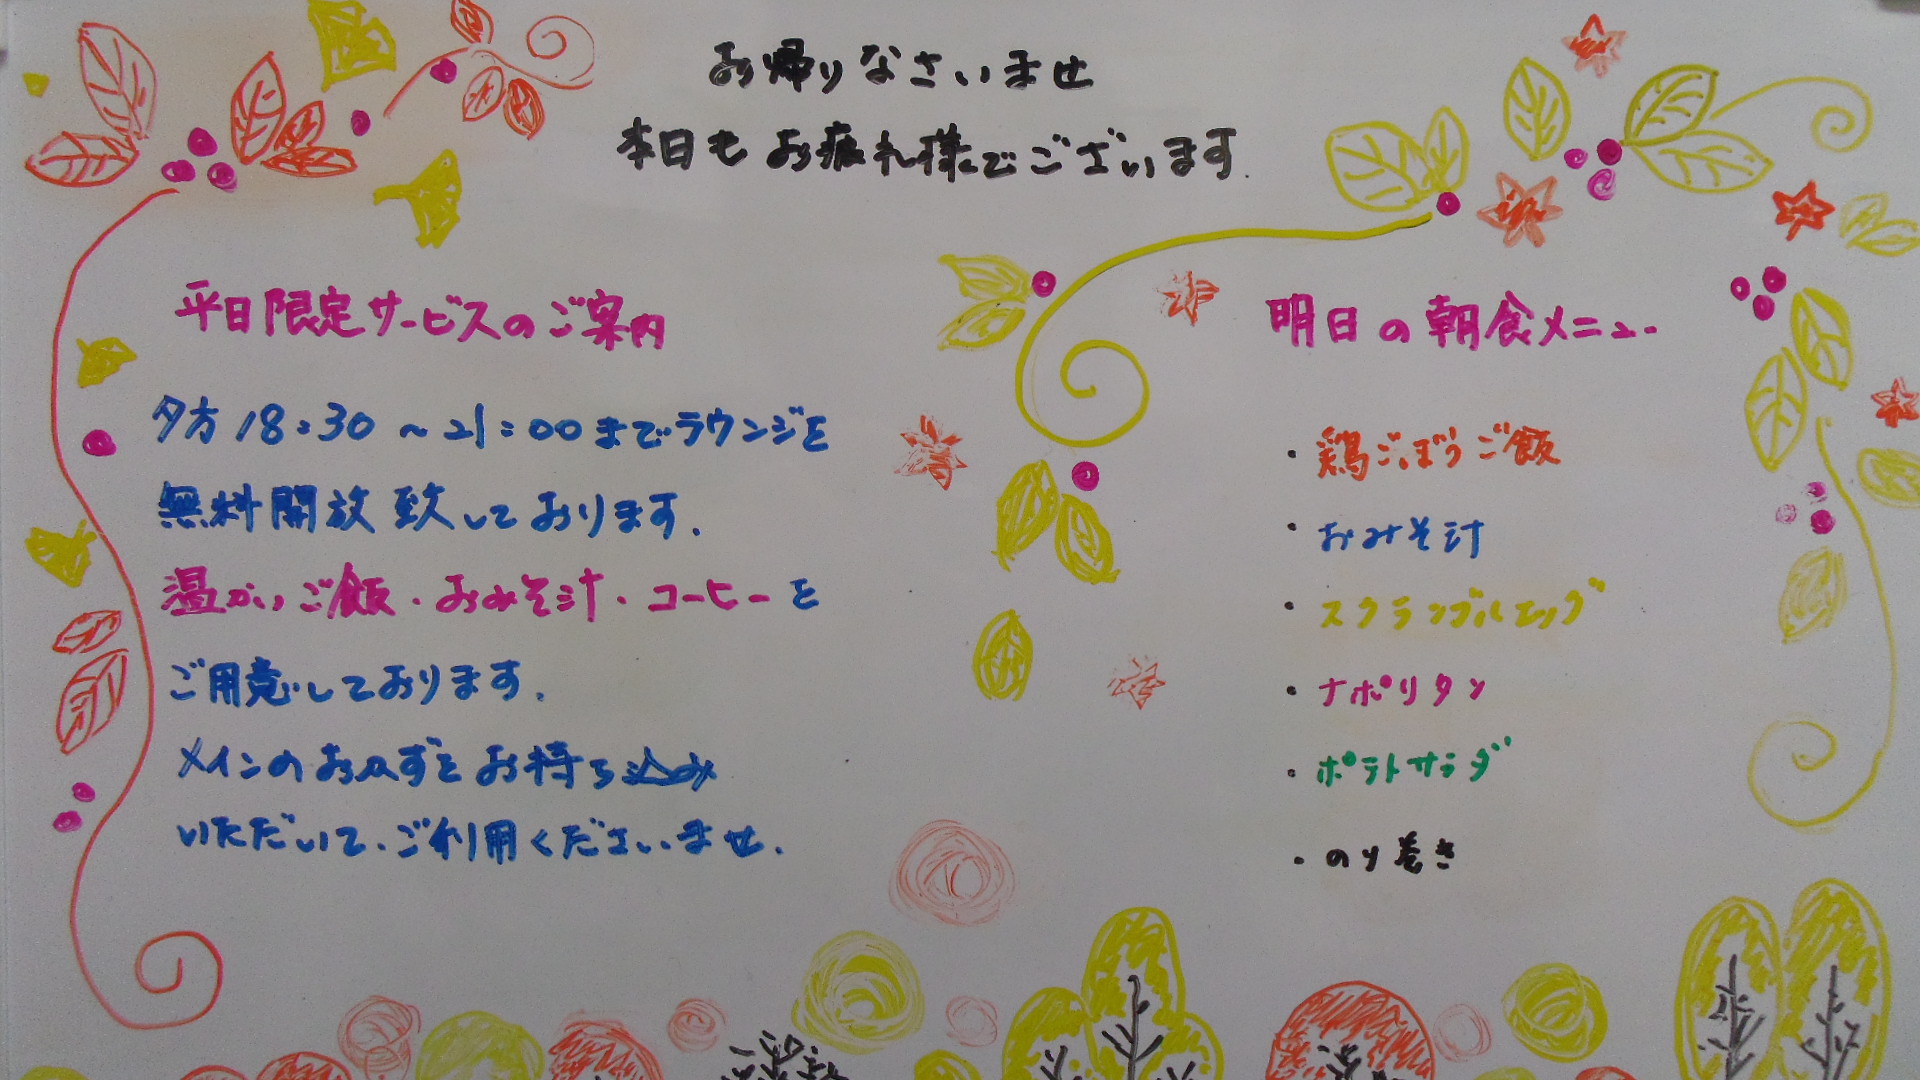 お帰りなさいませ
本日もお疲れ様でございます.
平日限定サービスのご案内
夕方18:30～21:00までラウンジを
無料開放致しております.
温かいご飯・おみそ汁・コーヒーを
ご用意しております.
メインのおかずをお持ち込み
いただいて、ご利用くださいませ.
明日の朝食メニュー
・鶏ごぼうご飯
・おみそ汁
・スクランブルエッグ
・ナポリタン
・ポテトサラダ
・のり巻き